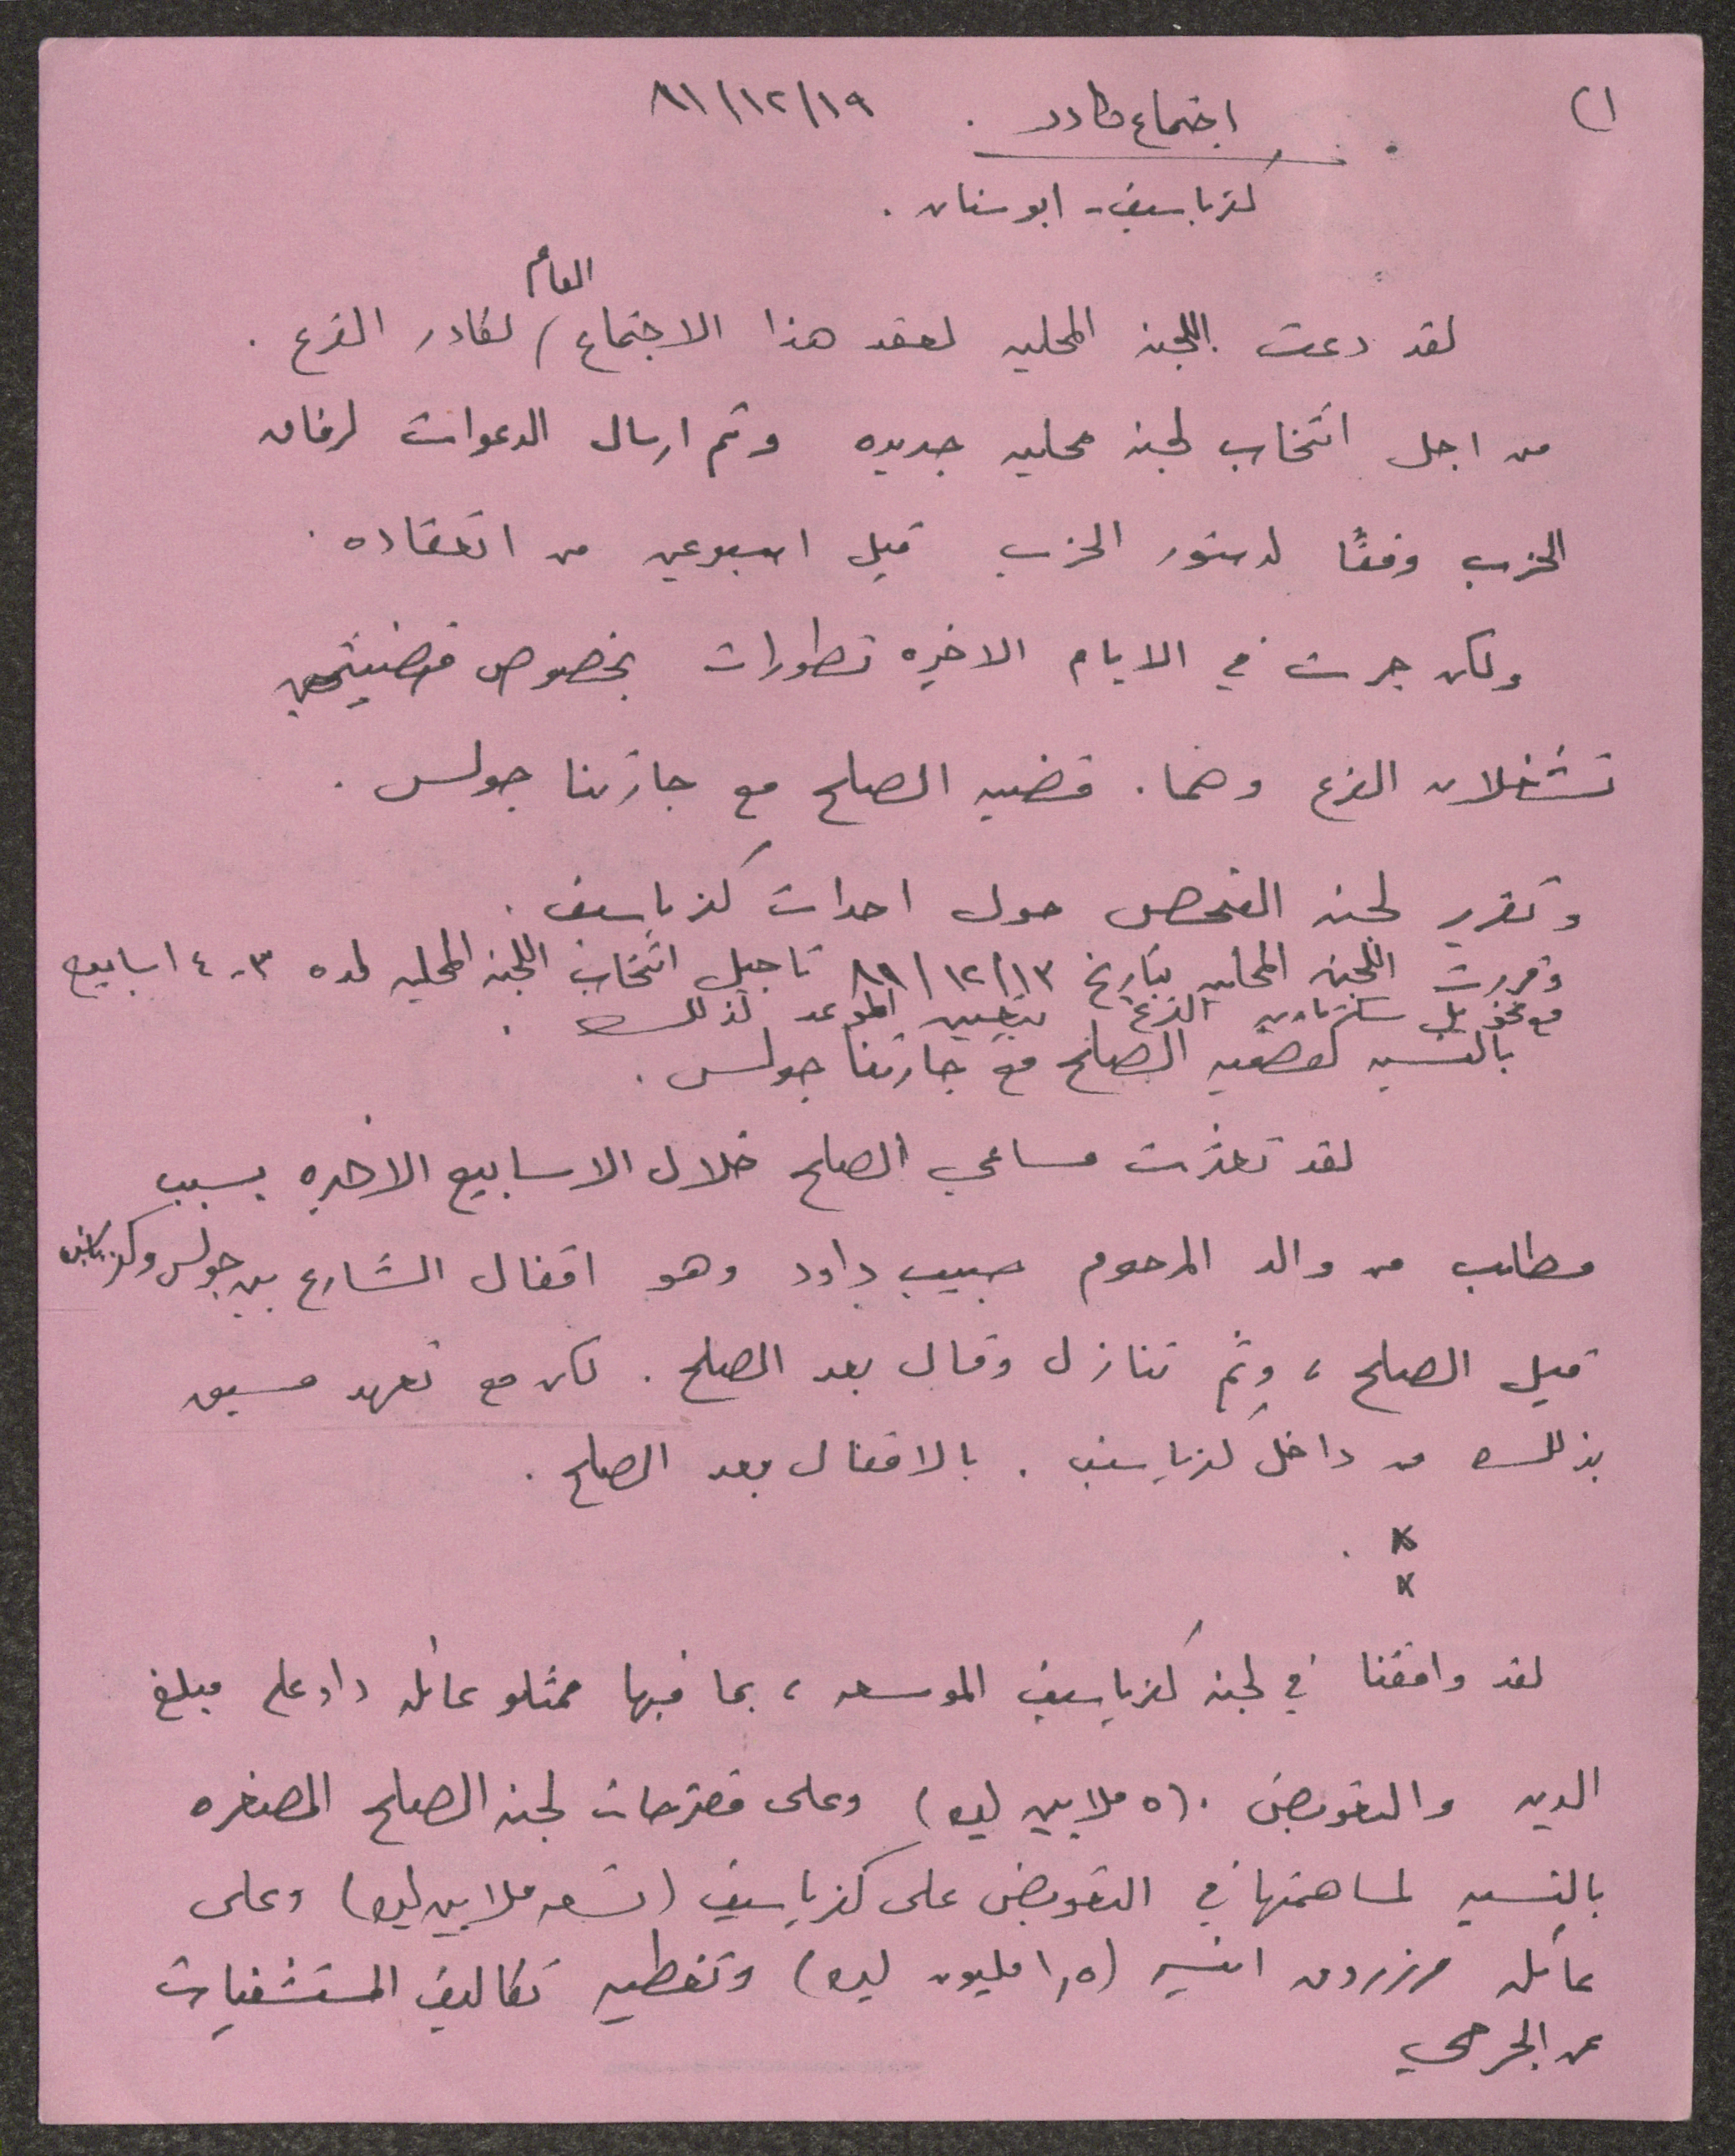 ١)
اجتماع كادر . ٨١/١٢/١٩
كفرياسيف - ابوسنان .
العام
لقد دعت اللجنه المحليه لعقد هذا الاجتماع / لكادر الفرع .
من اجل انتخاب لجنه محليه جديده وتم ارسال الدعوات لرفاق
الحزب وفقًا لدستور الحزب قبل اسبوعين من انعقاده .
ولكن جرت في الايام الاخيره تطورات بخصوص قضيتين
تشغلان الفرع وهما . قضيه الصلح مع جارتنا جولس .
وتقرير لجنه الفحص حول احداث كفرياسيف .
وقررت اللجنه المحليه بتاريخ ٨١/١٢/١٣ تاجيل انتخاب اللجنه المحليه لمده ٣-٤ اسابيع
مع تخويل سكرتاريه الفرع بتعيين الموعد لذلك .
بالنسبه لقضيه الصلح مع جارتنا جولس .
لقد تعثرت مساعي الصلح خلال الاسابيع الاخيره بسبب
مطالب من والد المرحوم حبيب داود وهو اقفال الشارع بين جولس وكفرياسيف
قبل الصلح ، وثم تنازل وقال بعد الصلح . لكن مع تعهد مسبق
بذلك من داخل كفرياسيف . بالاقفال بعد الصلح .
x
x
لقد وافقنا في لجنه كفرياسيف الموسعه ، بما فيها ممثلو عائله داود على مبلغ
الديه والتعويض . (٥ ملايين ليره) وعلى مقترحات لجنه الصلح المصغره
بالنسبه لمساهمتها في التعويض على كفرياسيف (تسعه ملايين ليره) وعلى
عائله مرزوق (١,٥ مليون ليره) وتغطيه تكاليف المستشفيات
عن الجرحى